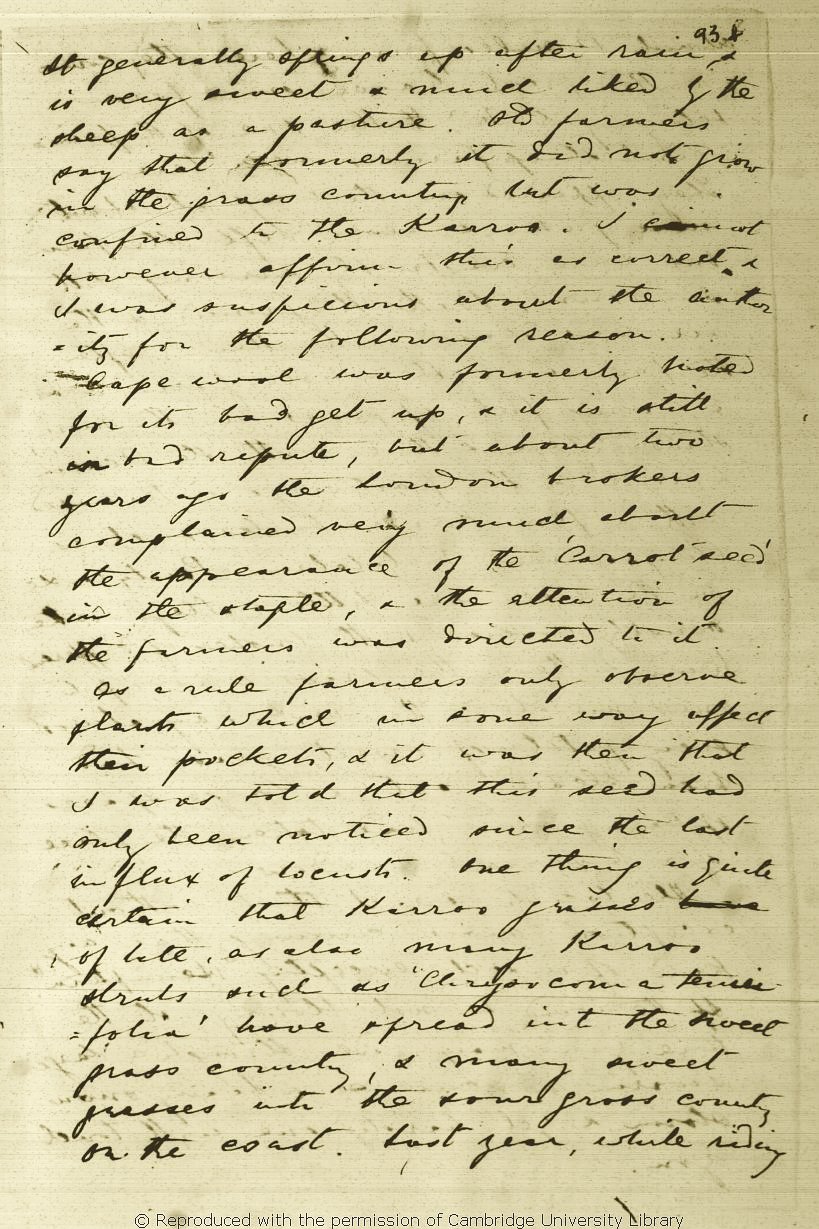 93
It generally springs up after rain, &
is very sweet & much liked by the
sheep as a pasture. Old farmers
say that formerly it did not grow
in the grass country but was
confined to the Karroo. I cannot
however affirm this as correct, &
I was suspicious about the author
=ity for the following reason.
Cape wool was formerly noted
for its bad get up, & it is still
in bad repute, but about two
years ago the London brokers
complained very much about
the appearance of the 'Carrot seed'
in the staple, & the attention of
the farmers was directed to it.
As a rule farmers only observe
plants which in some way affect
their pockets, & it was then that
I was told that this seed had
only been noticed since the last
influx of locusts. One thing is quite
certain that Karroo grasses have
of late, as also many Karroo
shrubs such as 'Chrysocoma tenui-
=folia' have spread into the sweet
grass country, & many sweet
grasses into the sour grass country
on the coast. Last year, while riding
© Reproduced with the permission of Cambridge University Library